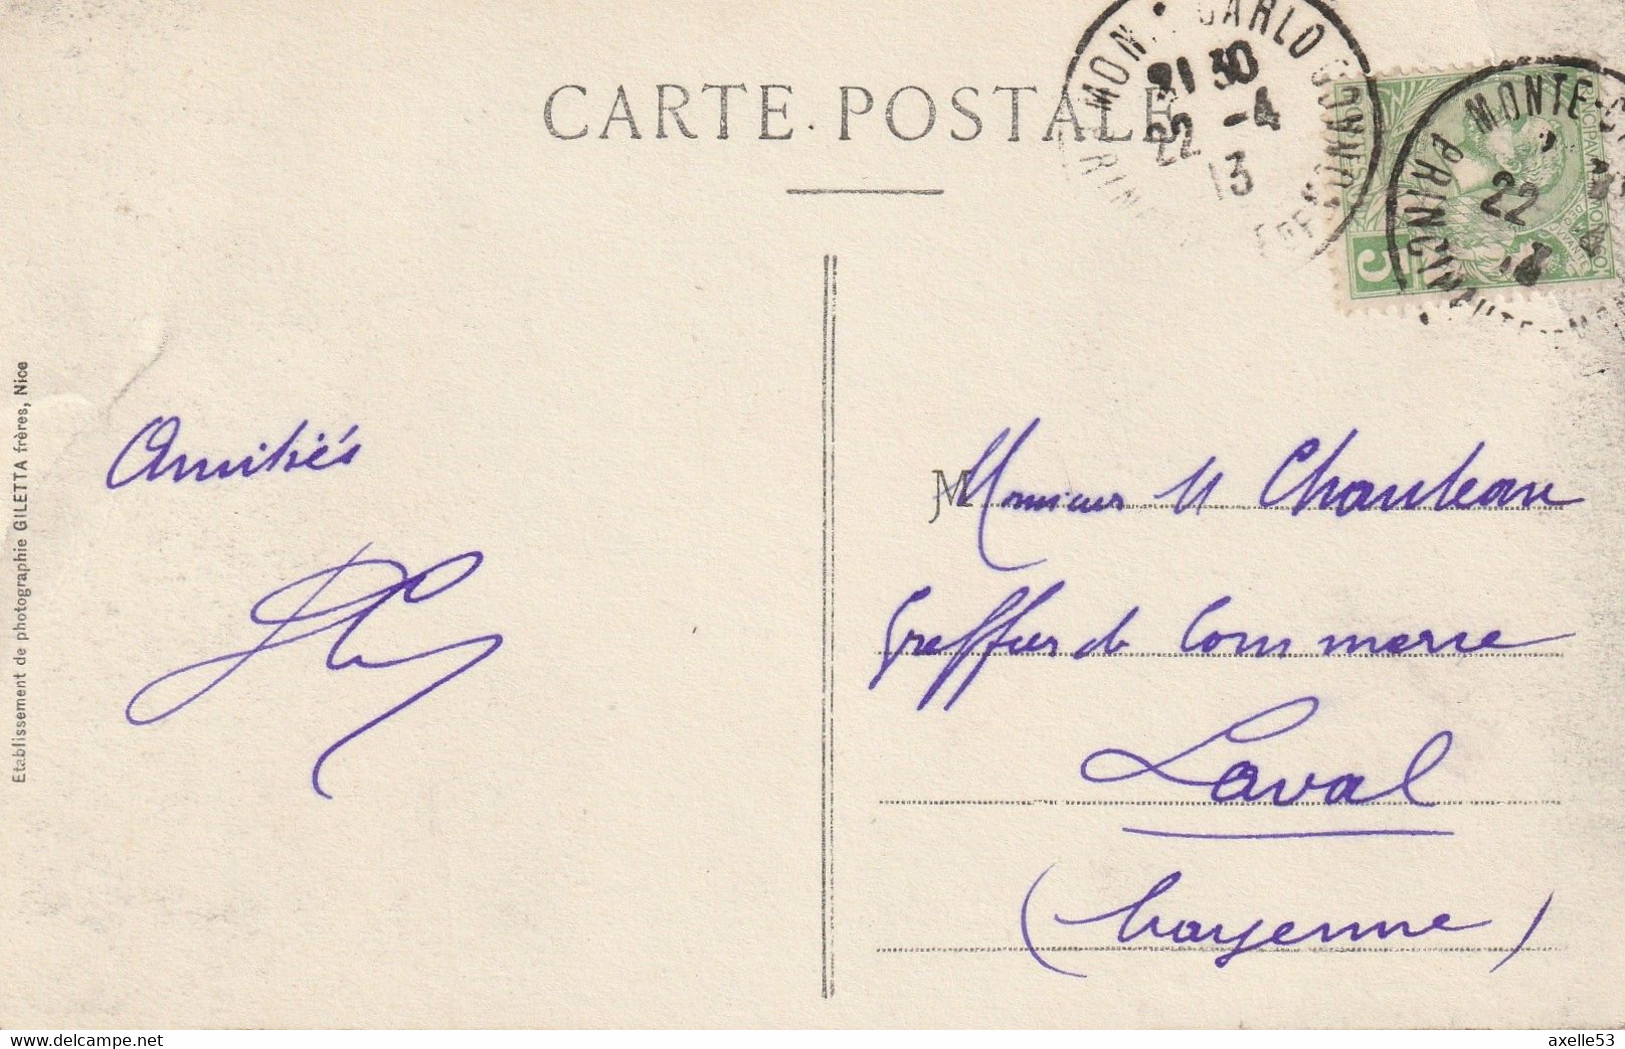 CARTE POSTALE
MONTE-CARLO
21 30
22 -4
13
MONTE-C
PRINCIPAUTE
22
5
Etablissement de photographie GILETTA frères, Nice
Amitiés
M Monsieur M Chauleau
Greffier de Commerce
Laval
(Mayenne)
delcampe.net
axelle53